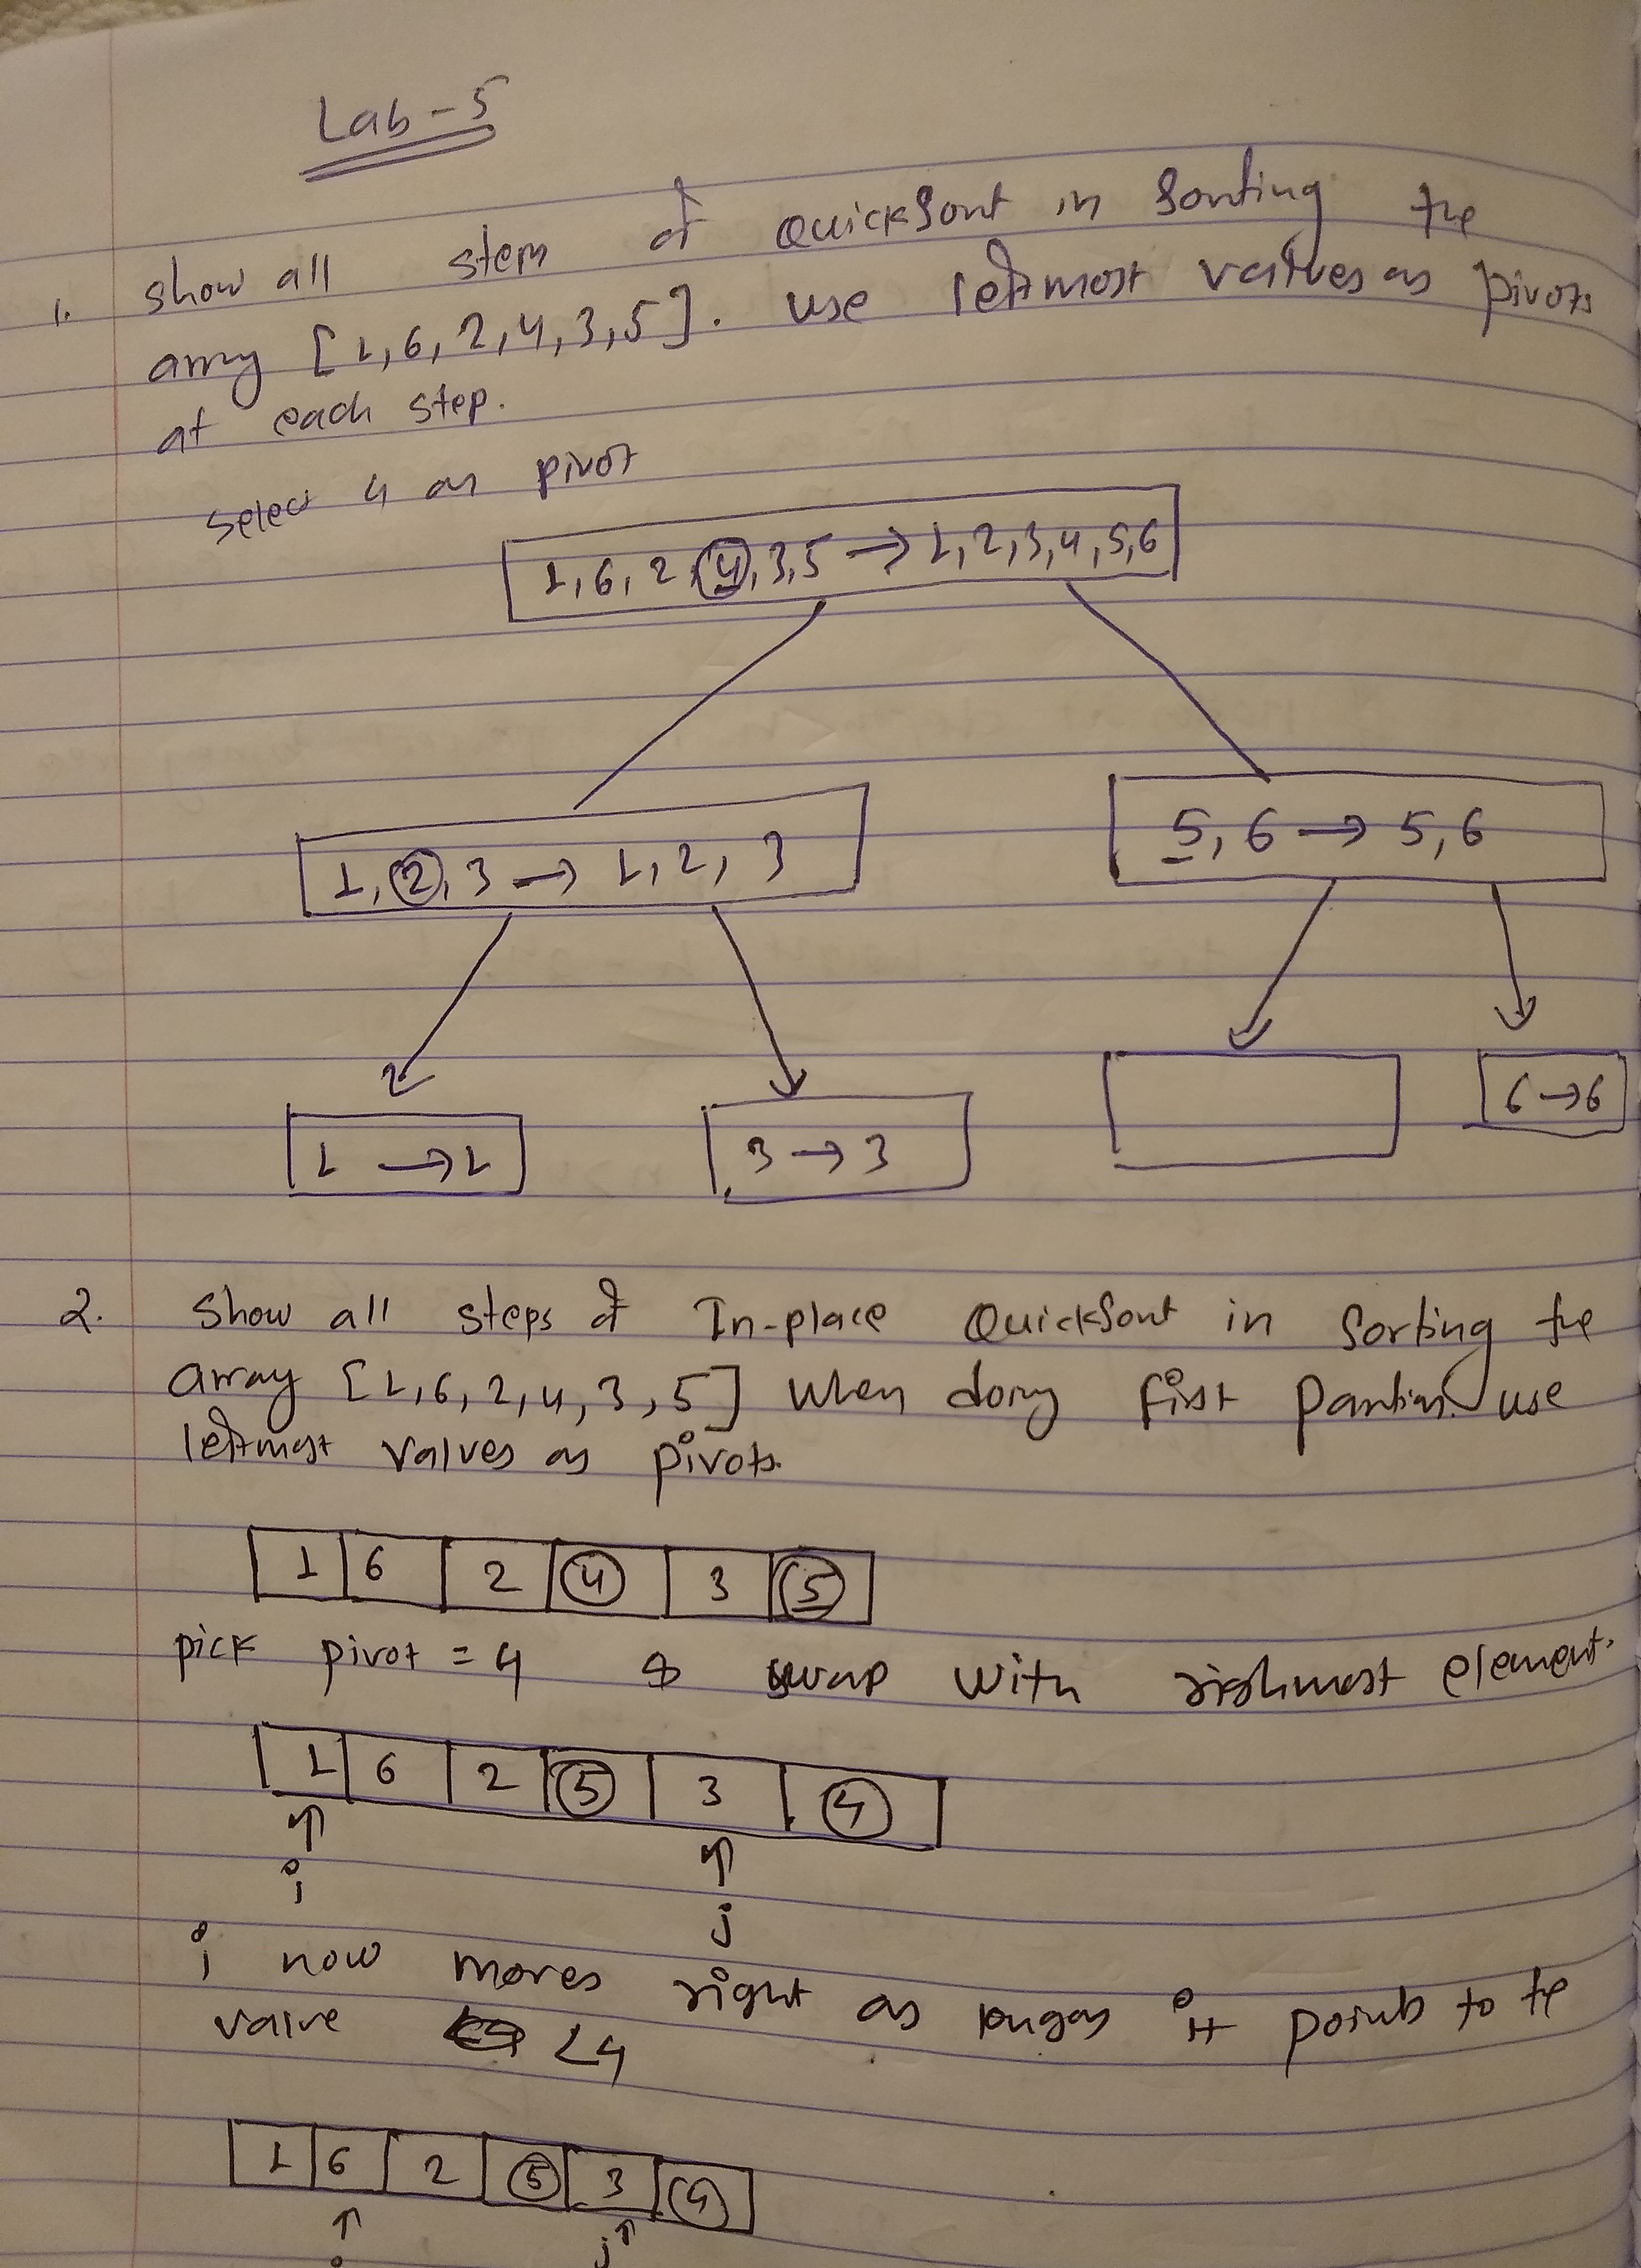 Lab-5
1. show all steps of QuickSort in Sorting the
array [1,6,2,4,3,5]. use leftmost values as pivots
at each step.
Select 4 as pivot
1,6,2,4,3,5 → 1,2,3,4,5,6
1,2,3 → 1,2,3
5,6 → 5,6
1 → 1
3 → 3
6 → 6
2. Show all steps of In-place QuickSort in Sorting the
array [1,6,2,4,3,5] When doing first use
leftmost values as pivots.
1 6 2 4 3 5
pick pivot = 4 & swap with rightmost element.
1 6 2 5 3 4
i j
i now moves right as long as it points to the
value <4
1 6 2 5 3 4
i j